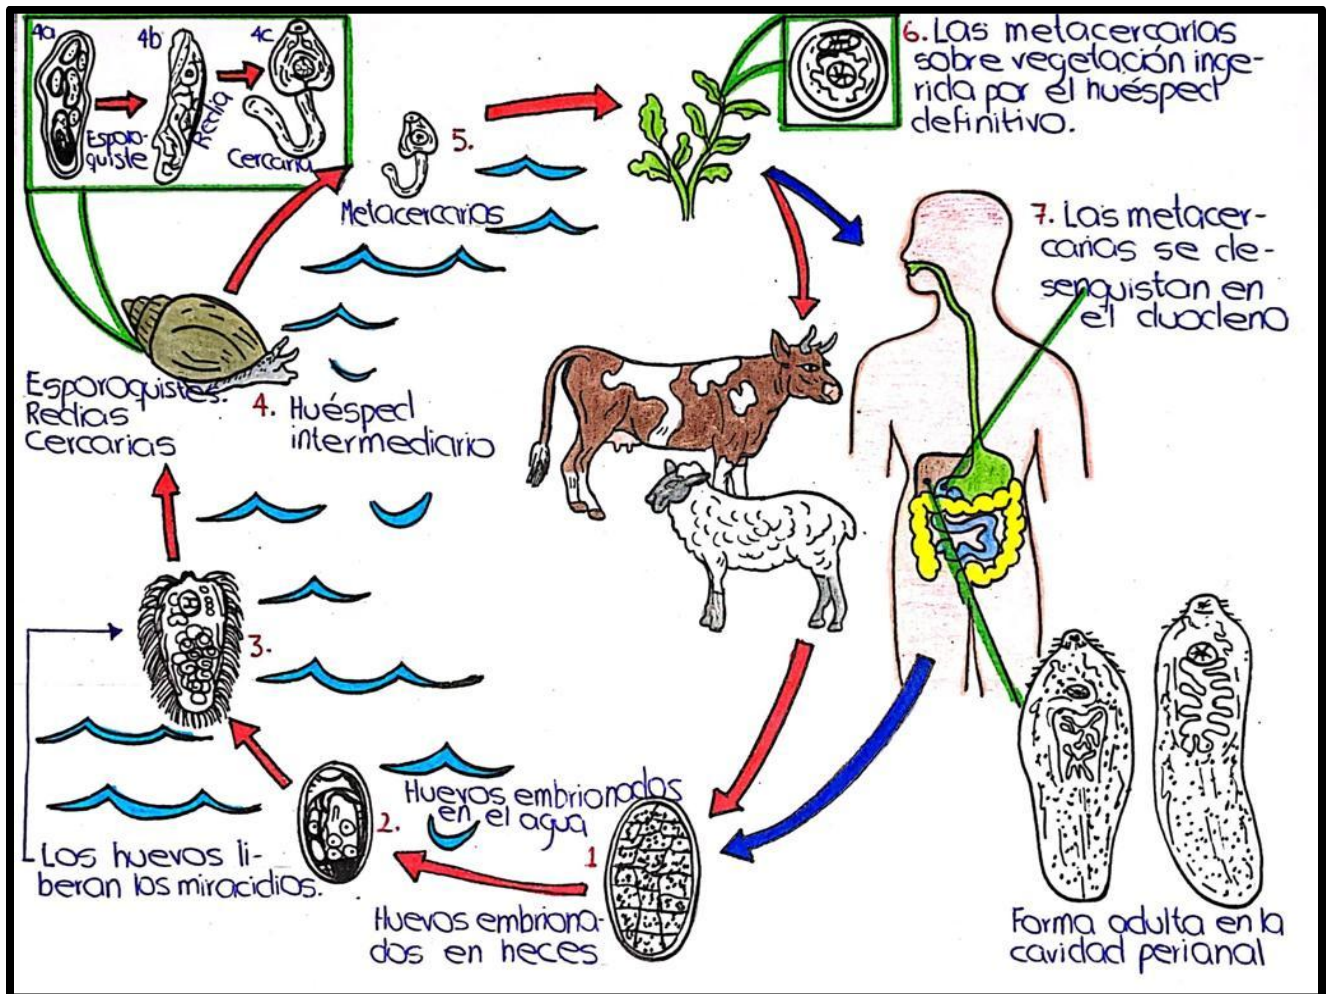 4a
4b
4c
Esporo-
quiste
Redia
Cercaria
5.
Metacercarias
6. Las metacercarias
sobre vegetación inge-
rida por el huésped
definitivo.
7. Las metacer-
carias se de-
senquistan en
el duodeno
Esporoquistes.
Redias
Cercarias
4. Huésped
intermediario
3.
2.
Huevos embrionados
en el agua
1
Los huevos li-
beran los miracidios.
Huevos embriona-
dos en heces
Forma adulta en la
cavidad perianal